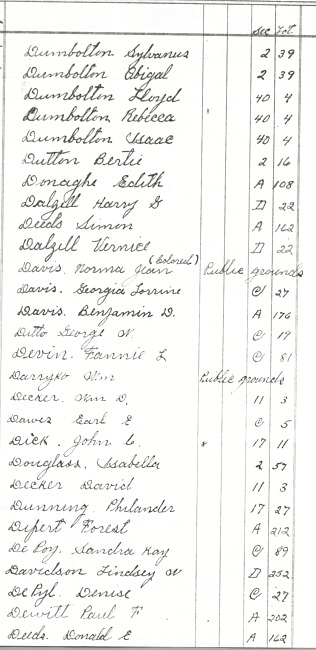 Sec Lot
Dumbolton Sylvanus 2 39
Dumbolton Abigal 2 39
Dumbolton Lloyd 40 4
Dumbolton Rebecca 40 4
Dumbolton Isaac 40 4
Dutton Bertie 2 16
Donaghe Edith A 108
Dalzell Harry G D 22
Deeds Simon A 162
Dalzell Vernice D 22
Davis. Norma Jean (Colored) Public grounds
Davis. Georgia Lorrine C 27
Davis. Benjamin D. A 176
Dutto George W. C 19
Devin. Fannie L C 81
Darryko Wm Public grounds
Decker. Wm D. 11 3
Dawes Earl E C 5
Dick. John C. * 17 11
Douglass. Isabella 2 57
Decker David 11 3
Dunning. Philander 17 27
Dipert Forest A 212
De Poy. Sandra Kay C 89
Davidson Lindsey W D 252
De Pyl. Denise C 27
Dewitt Paul F A 202
Deeds. Donald E A 162